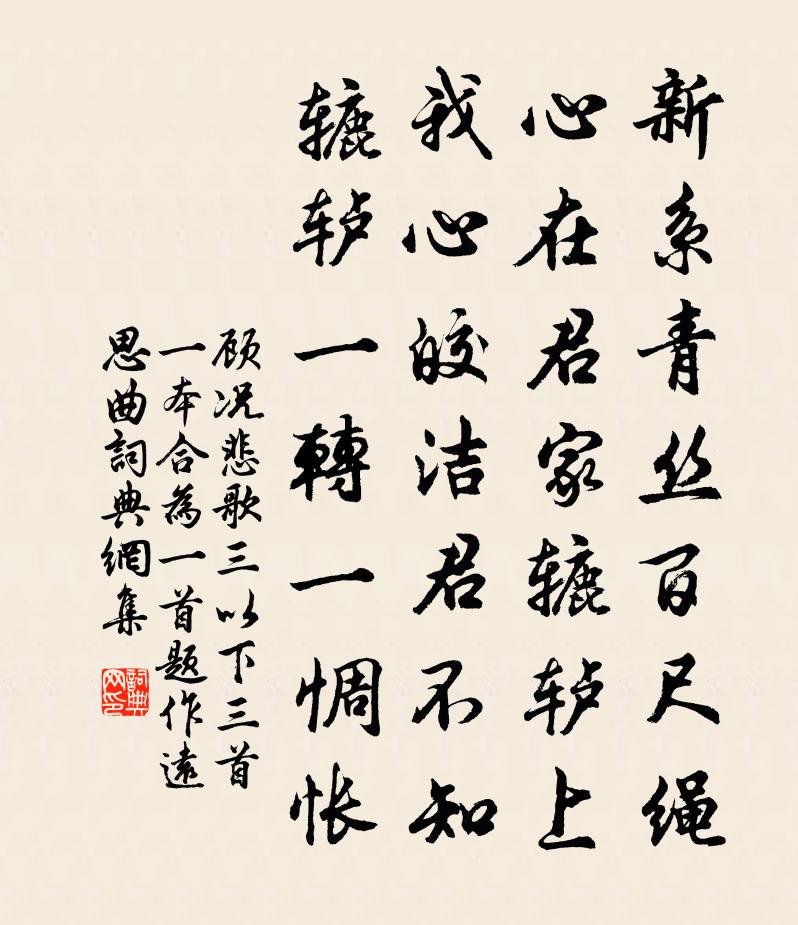 新系青丝百尺绳
心在君家辘轳上
我心皎洁君不知
辘轳一轉一惆怅
顾况悲歌三以下三首
一本合為一首题作遠
思曲詞典網集
詞典网印